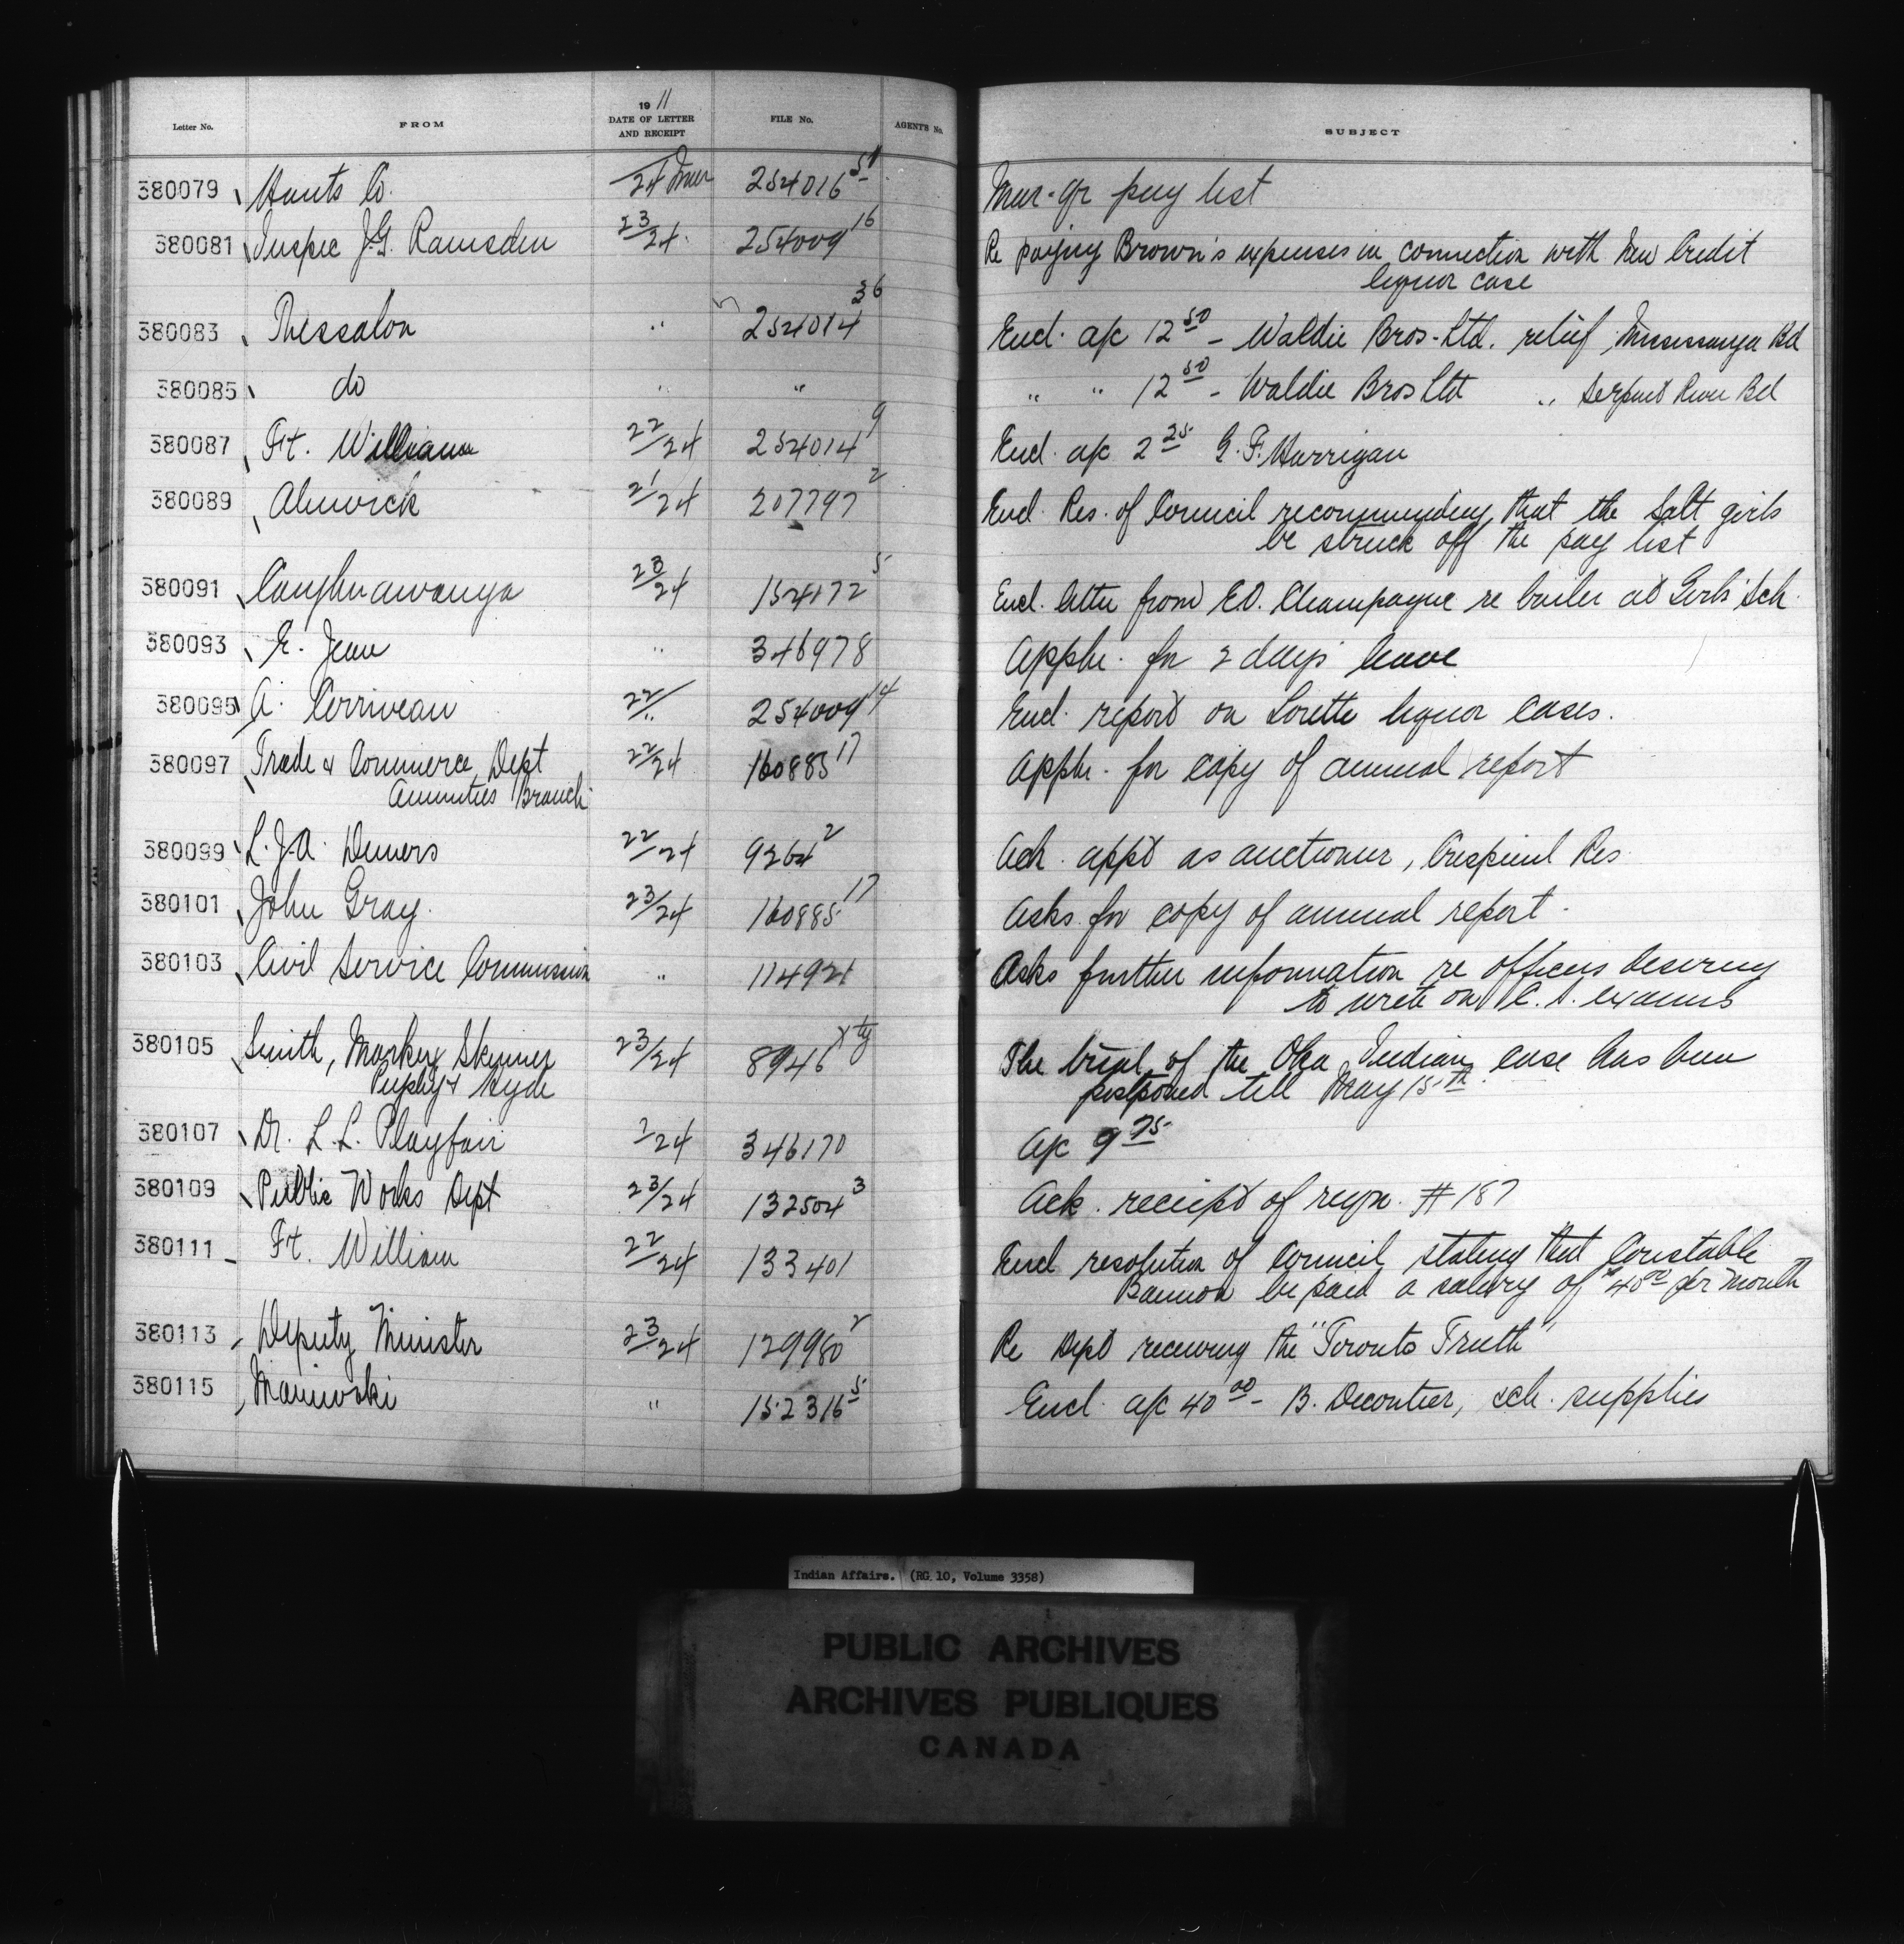 Letter No. FROM 19 11 DATE OF LETTER AND RECEIPT FILE No. AGENT'S No. SUBJECT
380079 Hants Co. /24 Mar 254016 51 Mar. qr pay list
380081 Inspec J.G. Ramsden 23/24 254009 16 Re paying Brown's expenses in connection with New Credit
liquor case
380083 Thessalon " 254014 36 Encl. a/c 12 50 – Waldie Bros. Ltd. relief Mississauga Bd
380085 do " " " " 12 50 – Waldie Bros Ltd " Serpent River Bd
380087 Ft. William 22/24 254014 9 Encl. a/c 2 25 G. F. Horrigan
380089 Alnwick 21/24 207797 2 Encl. Res. of Council recommending that the Salt girls
be struck off the pay list
380091 Caughnawauga 23/24 154172 5 Encl. letter from E.O. Champagne re boiler at Girls' Sch.
380093 E. Jean " 346978 Appln. for 2 days' leave
380095 A. Corriveau 22/" 254009 14 Encl. report on Lorette liquor cases.
380097 Trade & Commerce Dept 22/24 160885 17 Appln. for copy of annual report
Annuities Branch
380099 L. J. A. Demers 22/24 9264 2 Ack. appt as auctioneer, Crespieul Res.
380101 John Gray. 23/24 160885 17 Asks for copy of annual report.
380103 Civil Service Commission " 114921 Asks further information re officers desiring
to write on C. S. exams
380105 Smith, Markey Skinner 23/24 8946 The trial of the Oka Indian case has been
Pugsley & Hyde postponed till May 15th
380107 Dr. L. L. Playfair ?/24 346170 A/c 9 75
380109 Public Works Dept 23/24 132504 3 Ack. receipt of reqn. #187
380111 Ft. William 22/24 133401 Encl resolution of Council stating that Constable
Bannon be paid a salary of $40 00 per month
380113 Deputy Minister 23/24 129980 2 Re Dept receiving the "Toronto Truth"
380115 Maniwaki " 152316 5 Encl. a/c 40 00 – B. Decontier, sch. supplies
Indian Affairs. (RG 10, Volume 3358)
PUBLIC ARCHIVES
ARCHIVES PUBLIQUES
CANADA